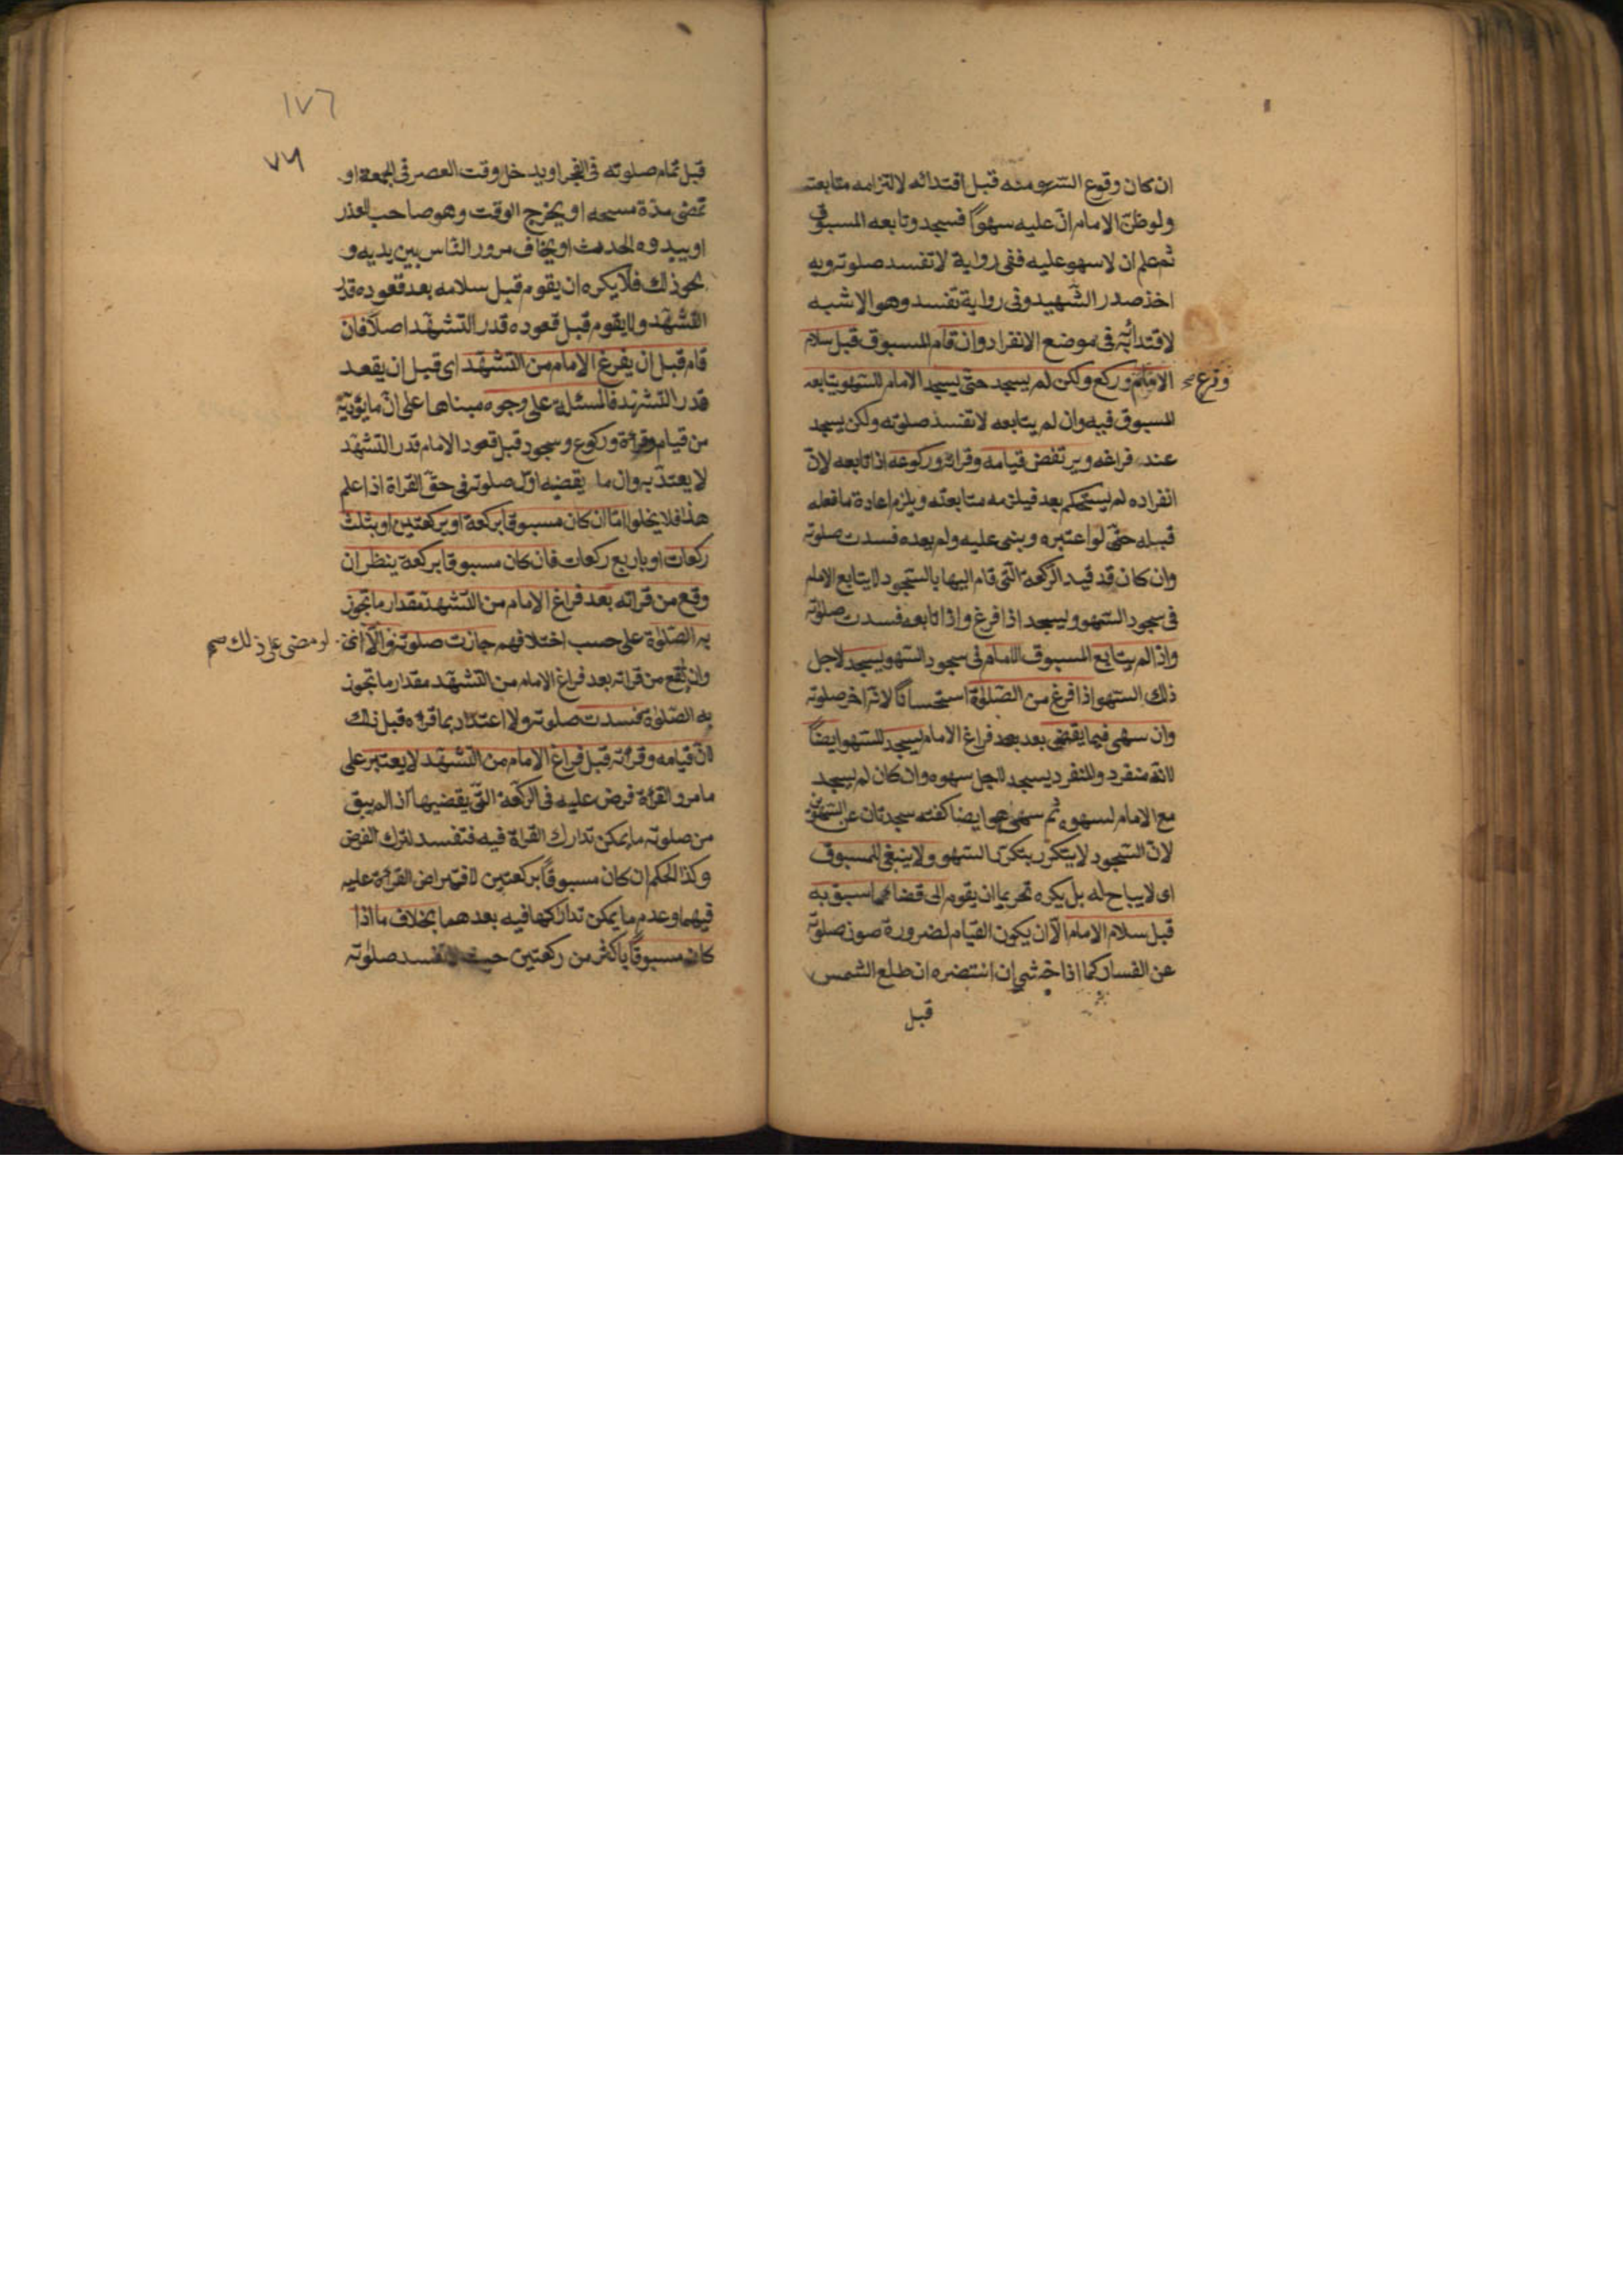 ان كان وقوع السهو منه قبل اقتدائه لالتزامه متابعته
ولو ظنّ الامام انّ عليه سهوًا فسجد وتابعه المسبوق
ثم علم ان لا سهو عليه ففى رواية لا تفسد صلوته وبه
اخذ صدر الشّهيد وفى رواية تفسد وهو الاشبه
لاقتدائه فى موضع الانفراد وان قام المسبوق قبل سلام
الامام وركع ولكن لم يسجد حتّى يسجد الامام للسّهو يتابعه
وقرء صح
المسبوق فيه وان لم يتابعه لا تفسد صلوته ولكن يسجد
عند فراغه ويرتفض قيامه وقرائته وركوعه اذا تابعه لانّ
انفراده لم يستحكم بعد فيلزمه متابعته ويلزم اعادة ما فعله
قبله حتّى لو اعتبره وبنى عليه ولم يعده فسدت صلوته
وان كان قد قيد الرّكعة الّتى قام اليها بالسّجود لا يتابع الامام
فى سجود السّهو ويسجد اذا فرغ واذا تابعه فسدت صلوته
واذا لم يتابع المسبوق الامام فى سجود السّهو يسجد لاجل
ذلك السّهو اذا فرغ من الصّلوة استحسانًا لانّه اخر صلوته
وان سهى فيما يقضى بعد فراغ الامام يسجد للسّهو ايضًا
لانّه منفرد والمنفرد يسجد لاجل سهوه وان كان لم يسجد
مع الامام لسهوه ثم سهى هو ايضا كفته سجدتان عن السّهوين
لانّ السّجود لا يتكرّر بتكرّر السّهو ولا ينبغى للمسبوق
اى لا يباح له بل يكره تحريما ان يقوم الى قضا ما سبق به
قبل سلام الامام الّا ان يكون القيام لضرورة صون صلوته
عن الفساد كما اذا خشى ان انتضره ان طلع الشمس
قبل
١٧٦
٧٦
قبل تمام صلوته فى الفجر او يدخل وقت العصر فى الجمعة او
تمضى مدّة مسحه او يخرج الوقت وهو صاحب العذر
او يبدوه الحدث او يخاف مرور النّاس بين يديه و
نحو ذلك فلا يكره ان يقوم قبل سلامه بعد قعوده قدر
التّشهّد ولا يقوم قبل قعوده قدر التّشهّد اصلًا فان
قام قبل ان يفرغ الامام من التّشهّد اى قبل ان يقعد
قدر التّشهّد فالمسئلة على وجوه مبناها على انّ ما يؤدّيه
من قيام وقرائة وركوع وسجود قبل قعود الامام قدر التّشهّد
لا يعتدّ به وان ما يقضيه اوّل صلوته فى حقّ القراة اذا علم
هذا فلا يخلوا امّا ان كان مسبوقا بركعة او بركعتين او بثلث
ركعات او باربع ركعات فان كان مسبوقا بركعة ينظر ان
وقع من قرائه بعد فراغ الامام من التّشهّد مقدار ما تجوز
به الصّلوٰة على حسب اختلافهم جازت صلوته والّا
لو مضى على ذلك صح
وان لم يقع من قرائه بعد فراغ الامام من التّشهّد مقدار ما تجوز
به الصّلوٰة فسدت صلوته ولا اعتداد بما قرأه قبل ذلك
لانّ قيامه وقرائته قبل فراغ الامام من التّشهّد لا يعتبر على
ما مر والقرائة فرض عليه فى الرّكعة الّتى يقضيها اذا لم يبق
من صلوته ما يمكن تدارك القراة فيه فتفسد لترك الفرض
وكذا الحكم ان كان مسبوقًا بركعتين لافتراض القرائة عليه
فيهما وعدم ما يمكن تداركها فيه بعدهما بخلاف ما اذا
كان مسبوقًا باكثر من ركعتين حيث لا تفسد صلوٰته